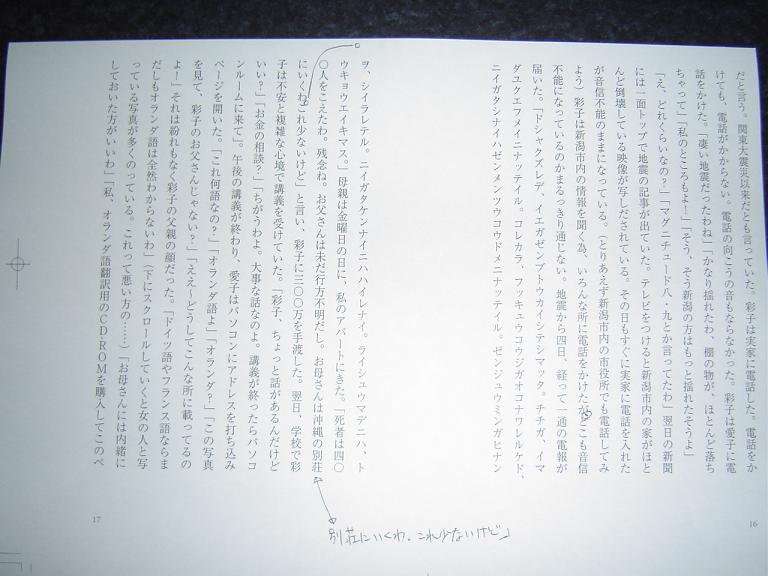 だと言う。関東大震災以来だとも言っていた。彩子は実家に電話した。電話をか
けても、電話がかからない。電話の向こうの音もならなかった。彩子は愛子に電
話をかけた。「凄い地震だったわね」「かなり揺れたわ、棚の物が、ほとんど落ち
ちゃって」「私のところもよー」「そう、そう新潟の方はもっと揺れたそうよ」
「え、どれくらいなの？」「マグニチュード八・九とか言ってたわ」翌日の新聞
には一面トップで地震の記事が出ていた。テレビをつけると新潟市内の家がほと
んど倒壊している映像が写しだされている。その日もすぐに実家に電話を入れた
が音信不能のままになっている。（とりあえず新潟市内の市役所でも電話してみ
よう）彩子は新潟市内の情報を聞く為、いろんな所に電話をかけたがどこも音信
不能になっているのかまるっきり通じない。地震から四日、経って一通の電報が
届いた。「ドシャクズレデ、イエガゼンブトウカイシテシマッタ。チチガ、イマ
ダユクエフメイニナッテイル。コレカラ、フッキュウコウジガオコナワレルケド、
ニイガタシナイハゼンメンツウコウドメニナッテイル。ゼンジュウミンガヒナン
16
ヲ、シイラレテル。ニイガタケンナイニハハイレナイ。ライシュウマデニハ、ト
ウキョウエイキマス。」母親は金曜日の日に、私のアパートにきた。「死者は四〇
〇人をこえたわ。残念ね。お父さんは未だ行方不明だし。お母さんは沖縄の別荘
にいくわこれ少ないけど」と言い、彩子に三〇〇万を手渡した。翌日、学校で彩
子は不安と複雑な心境で講義を受けていた。「彩子、ちょっと話があるんだけど
いい？」「お金の相談？」「ちがうわよ。大事な話なのよ。講義が終わったらパソコ
ンルームに来て」。午後の講義が終わり、愛子はパソコンにアドレスを打ち込み
ページを開いた。「これ何語なの？」「オランダ語よ」「オランダ？」「この写真
を見て、彩子のお父さんじゃない？」「ええ〜どうしてこんな所に載ってるの
よー」それは紛れもなく彩子の父親の顔だった。「ドイツ語やフランス語ならま
だしもオランダ語は全然わからないわ」（下にスクロールしていくと女の人と写
っている写真が多くのっている。これって悪い方の……）「お母さんには内緒に
しておいた方がいいわ」「私、オランダ語翻訳用のCD-ROMを購入してこのペ
17
別荘にいくわ。これ少ないけど」